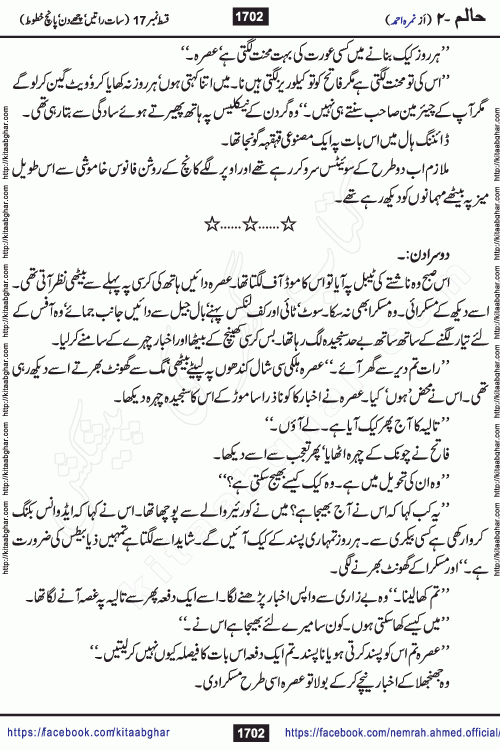 حالم -۲ (از نمرہ احمد)
1702
قسط نمبر 17 (سات راتیں' چھے دن' پانچ خطوط)
’’ہر روز کیک بنانے میں کسی عورت کی بہت محنت لگتی ہے' عصرہ۔‘‘
’’اس کی تو محنت لگتی ہے مگر فاتح کو تو کیلوریز لگتی ہیں نا۔ میں اتنا کہتی ہوں' ہر روز نہ کھایا کرو' ویٹ گین کر لو گے
مگر آپ کے چیئرمین صاحب سنتے ہی نہیں۔‘‘ وہ گردن کے نیکلیس پہ ہاتھ پھیرتے ہوئے سادگی سے بتا رہی تھی۔
ڈائننگ ہال میں اس بات پہ ایک مصنوعی قہقہہ گونجا تھا۔
ملازم اب دو طرح کے سوئیٹس سرو کر رہے تھے اور اوپر لگے کانچ کے روشن فانوس خاموشی سے اس طویل
میز پہ بیٹھے مہمانوں کو دیکھ رہے تھے۔
☆......☆......☆
دوسرا دن:۔
اس صبح وہ ناشتے کی ٹیبل پہ آیا تو اس کا موڈ آف لگتا تھا۔ عصرہ دائیں ہاتھ کی کرسی پہ پہلے سے بیٹھی نظر آتی تھی۔
اسے دیکھ کے مسکرائی۔ وہ مسکرا بھی نہ سکا۔ سوٹ' ٹائی اور کف لنکس پہنے' بال جیل سے دائیں جانب جمائے' وہ آفس کے
لئے تیار لگنے کے ساتھ ساتھ بے حد سنجیدہ لگ رہا تھا۔ بس کرسی کھینچ کے بیٹھا اور اخبار چہرے کے سامنے کر لیا۔
’’رات تم دیر سے گھر آئے۔‘‘ عصرہ ہلکی سی شال کندھوں پہ لپیٹے بیٹھی مگ سے گھونٹ بھرتے اسے دیکھ رہی
تھی۔ اس نے محض 'ہوں' کہا۔ عصرہ نے اخبار کا کونا ذرا سا موڑ کے اس کا سنجیدہ چہرہ دیکھا۔
’’تالیہ کا آج پھر کیک آیا ہے۔ لے آؤں۔‘‘
فاتح نے چونک کے چہرہ اٹھایا' پھر تعجب سے اسے دیکھا۔
’’وہ ان کی تحویل میں ہے۔ وہ کیک کیسے بھیج سکتی ہے؟‘‘
’’یہ کب کہا کہ اس نے آج بھیجا ہے؟ میں نے کوریئر والے سے پوچھا تھا۔ اس نے کہا کہ ایڈوانس بکنگ
کروا رکھی ہے کسی بیکری سے۔ ہر روز تمہاری پسند کے کیک آئیں گے۔ شاید اسے لگتا ہے تمہیں ذیابیطس کی ضرورت
ہے۔‘‘ اور مسکرا کے گھونٹ بھرنے لگی۔
’’تم کھا لینا۔‘‘ وہ بے زاری سے واپس اخبار پڑھنے لگا۔ اسے ایک دفعہ پھر سے تالیہ پہ غصہ آنے لگا تھا۔
’’میں کیسے کھا سکتی ہوں۔ کون سا میرے لئے بھیجا ہے اس نے۔‘‘
’’عصرہ تم اس کو پسند کرتی ہو یا نا پسند۔ تم ایک دفعہ اس بات کا فیصلہ کیوں نہیں کر لیتیں۔‘‘
وہ جھنجھلا کے اخبار نیچے کر کے بولا تو عصرہ اسی طرح مسکرا دی۔
https://facebook.com/kitaabghar
1702
https://facebook.com/nemrah.ahmed.official/
http://kitaabghar.com